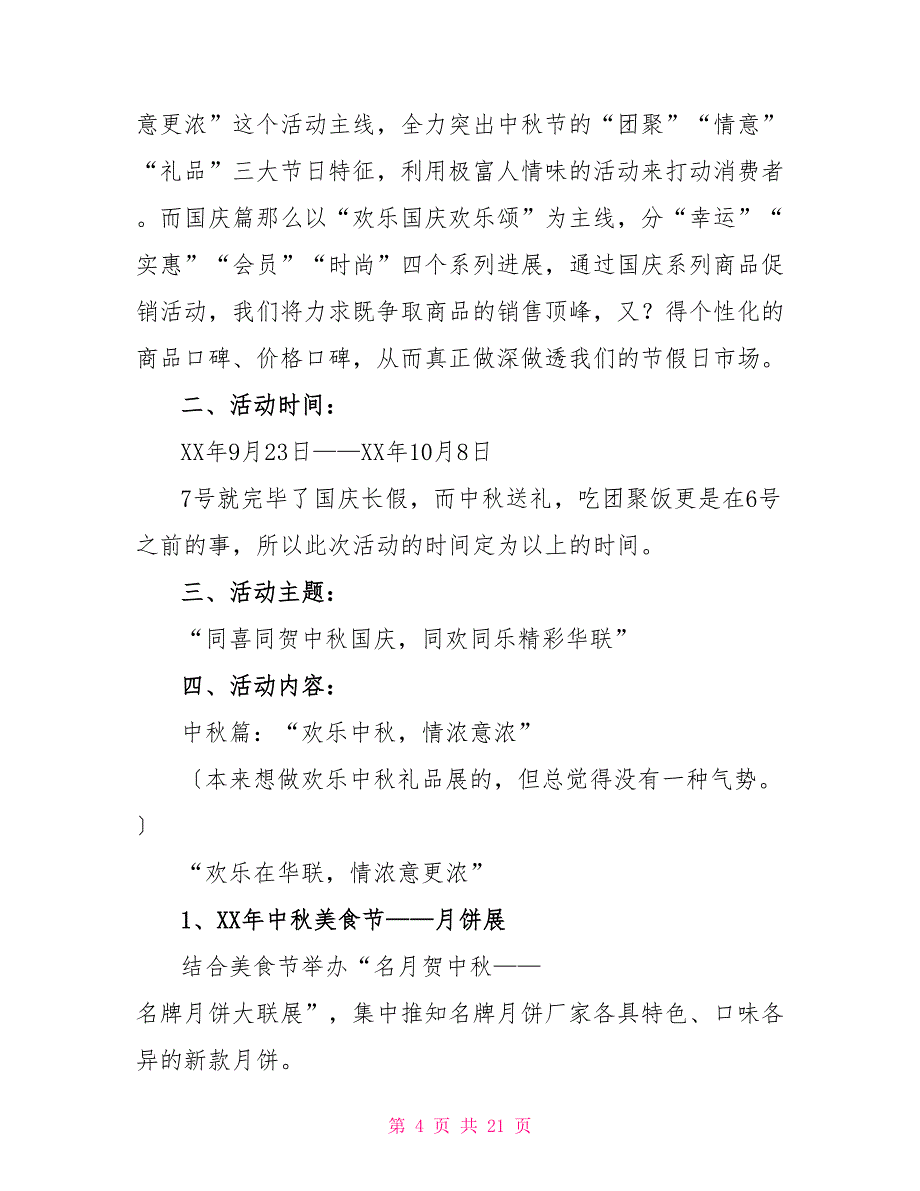 意更浓”这个活动主线，全力突出中秋节的“团聚”“情意”
“礼品”三大节日特征，利用极富人情味的活动来打动消费者
。而国庆篇那么以“欢乐国庆欢乐颂”为主线，分“幸运”“
实惠”“会员”“时尚”四个系列进展，通过国庆系列商品促
销活动，我们将力求既争取商品的销售顶峰，又？得个性化的
商品口碑、价格口碑，从而真正做深做透我们的节假日市场。
二、活动时间：
XX年9月23日——XX年10月8日
7号就完毕了国庆长假，而中秋送礼，吃团聚饭更是在6号
之前的事，所以此次活动的时间定为以上的时间。
三、活动主题：
“同喜同贺中秋国庆，同欢同乐精彩华联”
四、活动内容：
中秋篇：“欢乐中秋，情浓意浓”
〔本来想做欢乐中秋礼品展的，但总觉得没有一种气势。
〕
“欢乐在华联，情浓意更浓”
1、XX年中秋美食节——月饼展
结合美食节举办“名月贺中秋——
名牌月饼大联展”，集中推知名牌月饼厂家各具特色、口味各
异的新款月饼。
第 4 页 共 21 页